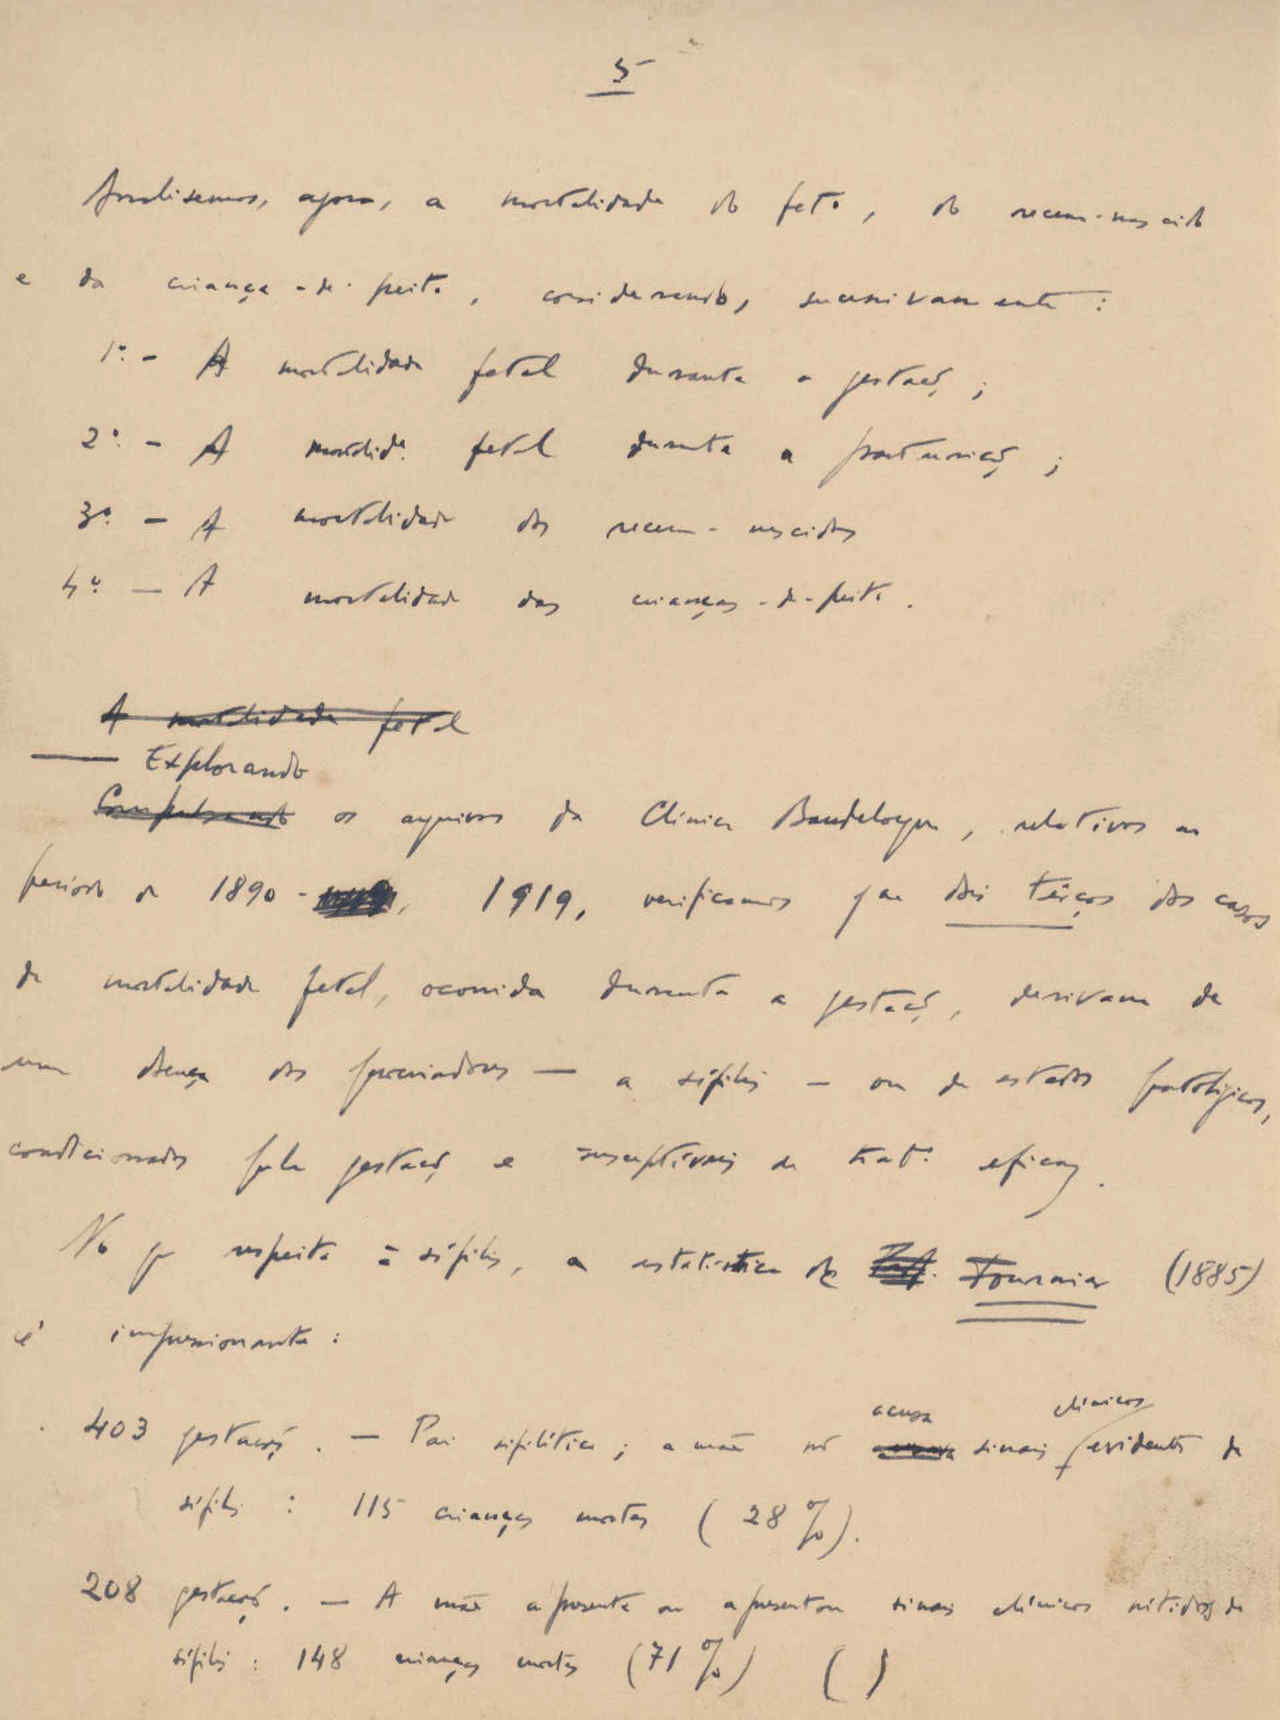 5
Analisemos, agora, a mortalidade do feto, do recem-nascido
e da criança-de-peito, considerando, sucessivamente:
1º. - A mortalidade fetal durante a gestação;
2º. - A mortalide. fetal durante a parturição;
3º. - A mortalidade dos recem-nascidos
4º. - A mortalidade das crianças-de-peito.
A mortalidade fetal
— Explorando
Compulsando os arquivos da Clínica Baudelocque, relativos ao
período de 1890 - 1919, verificamos que dois têrços dos casos
de mortalidade fetal, ocorrida durante a gestação, derivam de
uma doença dos procriadores — a sífilis — ou de estados patológicos,
condicionados pela gestação e susceptíveis de trat.º eficaz.
No que respeita à sífilis, a estatística de Fournier (1885)
é impressionante:
acusa clínicos
403 gestações. — Pai sifilítico; a mãe não sinais evidentes de
sífilis: 115 crianças mortas (28%).
208 gestações. — A mãe apresenta ou apresentou sinais clínicos nítidos de
sífilis: 148 crianças mortas (71%) ( )